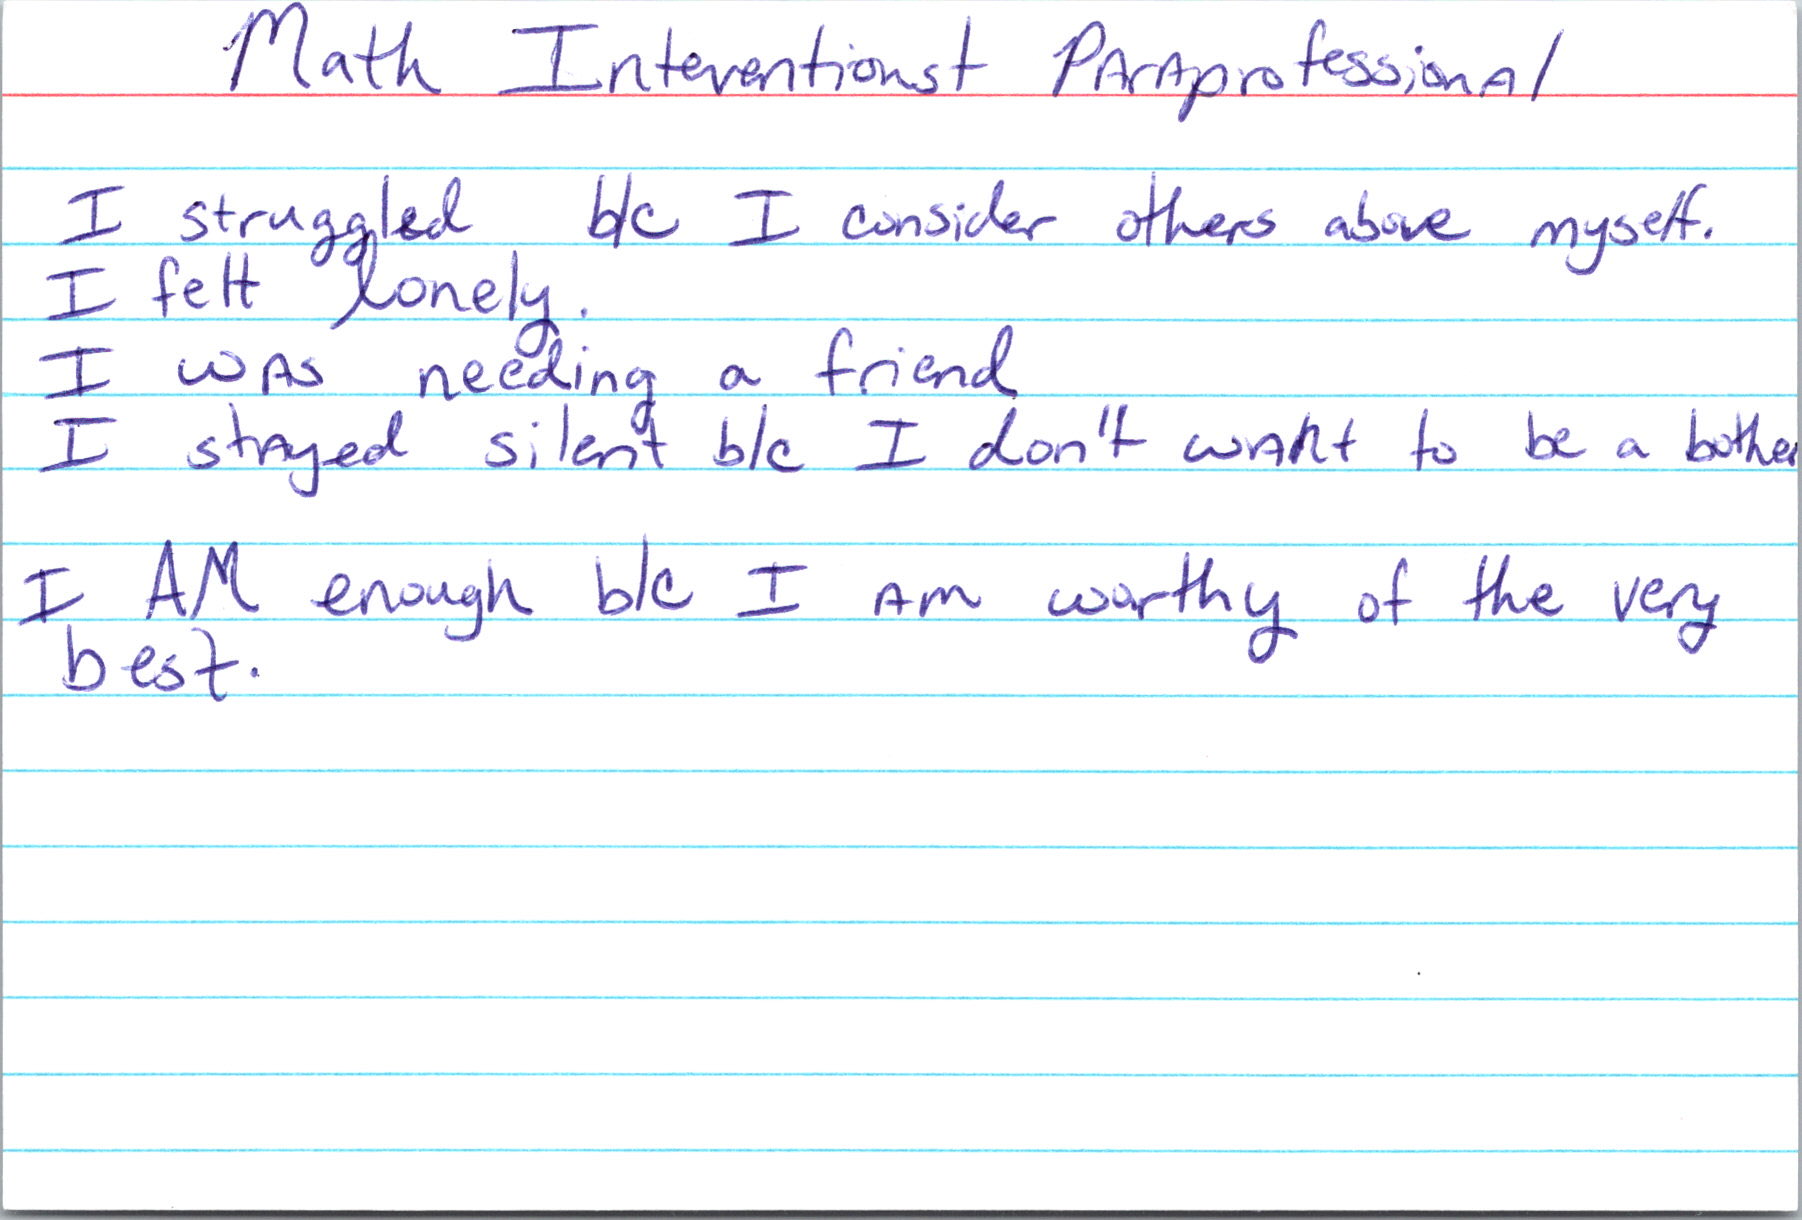 Math Interventionst PArAprofessionAl
I struggled b/c I consider others above myself.
I felt lonely.
I wAs needing a friend
I stAyed silent b/c I don't wAnt to be a bother
I AM enough b/c I Am worthy of the very
best.